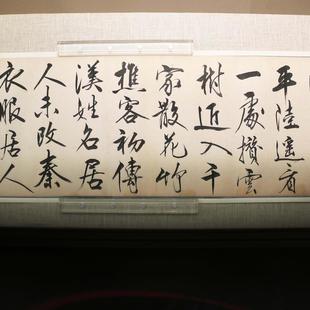 平陸遥看
一處攢雲
樹近入千
家散花竹
樵客初傳
漢姓名居
人未改秦
衣服居人